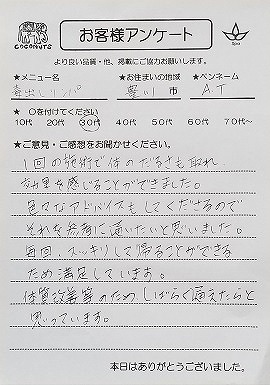 COCONUTS
お客様アンケート
Spa
より良い品質・他、掲載にご協力お願いします。
★メニュー名 ★お住まいの地域 ★ペンネーム
毒出しリンパ 豊川 市 A.T
★ 〇を付けてください
10代 20代 30代 40代 50代 60代 70代～
★ご意見・ご感想をお聞かせください。
1回の施術で体のだるさも取れ
効果を感じることができました。
色々なアドバイスもしてくださるので
それを参考に通いたいと思いました。
毎回、スッキリして帰ることができる
ため満足しています。
体質改善等のためしばらく通えたらと
思っています。
本日はありがとうございました。